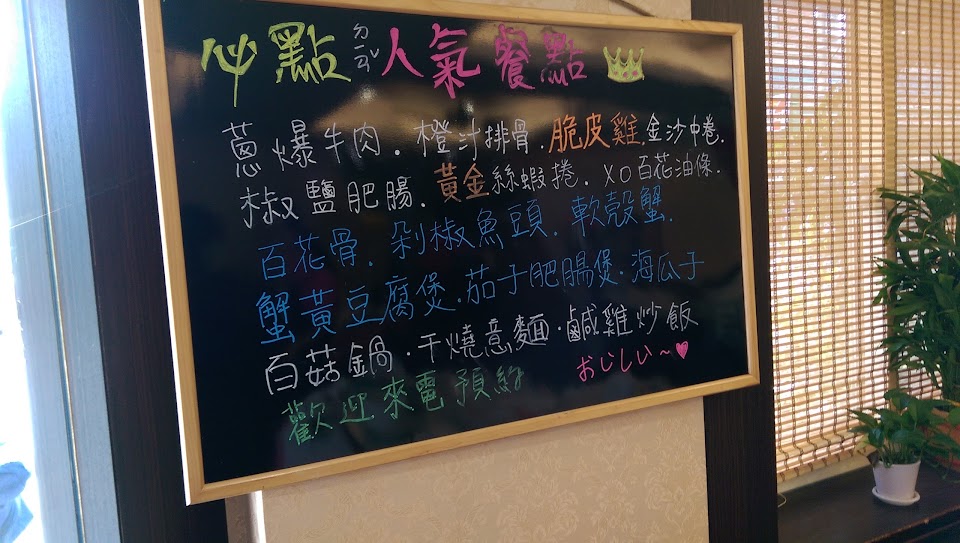 必點ㄉㄧㄢˇ人氣餐點
蔥爆牛肉．橙汁排骨．脆皮雞．金沙中卷．
椒鹽肥腸．黃金絲蝦捲．XO百花油條．
百花骨．剁椒魚頭．軟殼蟹．
蟹黃豆腐煲．茄子肥腸煲．海瓜子
百菇鍋．干燒意麵．鹹雞炒飯
歡迎來電預約
おじしい～♥